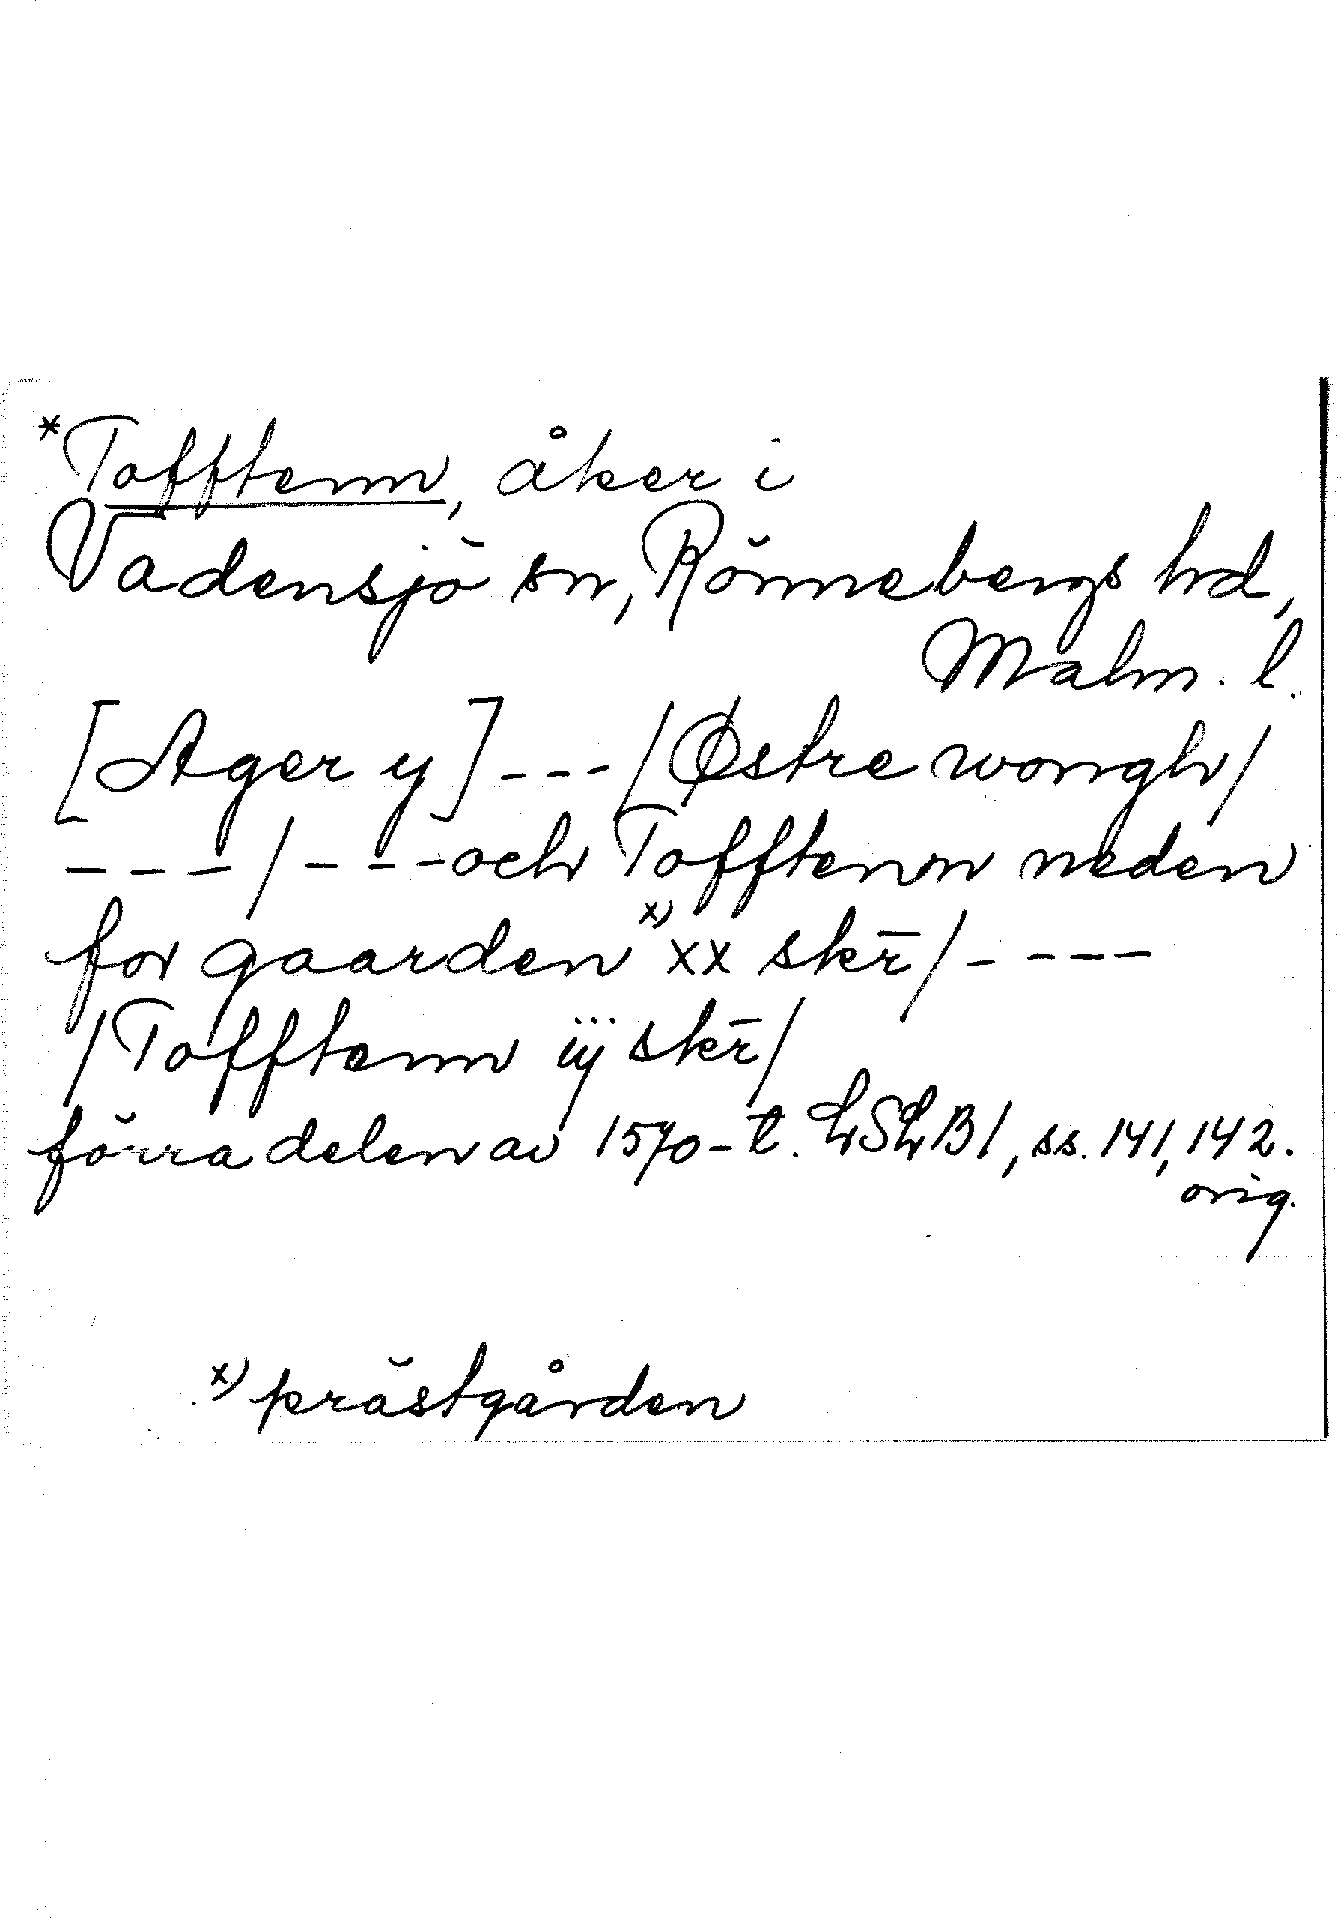 *Tofftenn, åker i
Vadensjö sn, Rönnebergs hd,
Malm. l.
[Ager y] --- /Østre wongh/
--- / --- och Tofftenn neden
for gaarden x) xx skr̄ / ----
/Tofftenn iij skr̄/
förra delen av 1570-t. LSLB1, ss. 141, 142.
orig.
x) prästgården